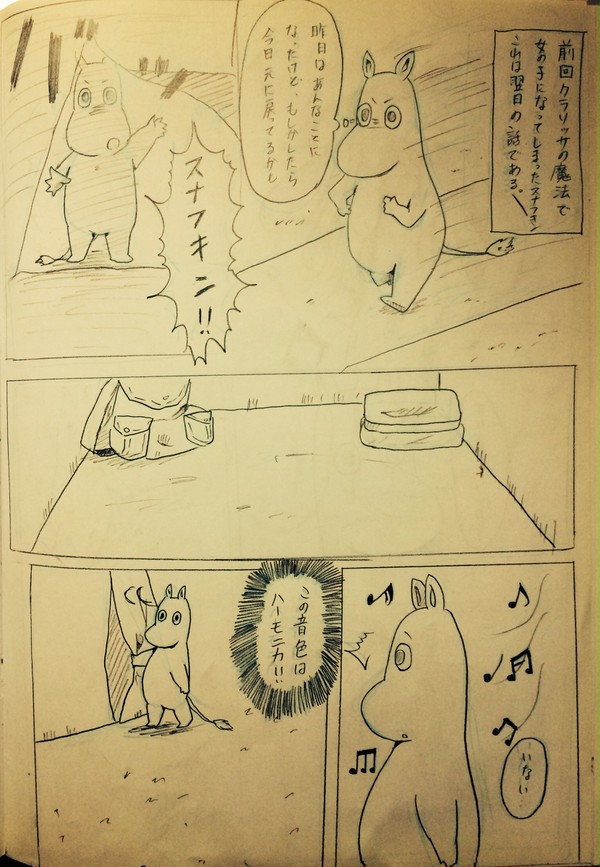 前回クラリッサの魔法で
女の子になってしまったスナフキン
これは翌日の話である。
昨日はあんなことに
なったけど、もしかしたら
今日元に戻ってるかも
スナフキン!!
いない…
この音色は
ハーモニカ!!